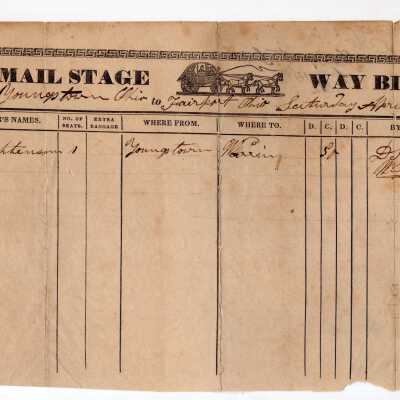 MAIL STAGE WAY BI
Youngstown Ohio to Fairport Ohio Saturday Apri
'S NAMES. NO. OF SEATS. EXTRA BAGGAGE WHERE FROM. WHERE TO. D. C. D. C. BY
phenson 1 Youngstown